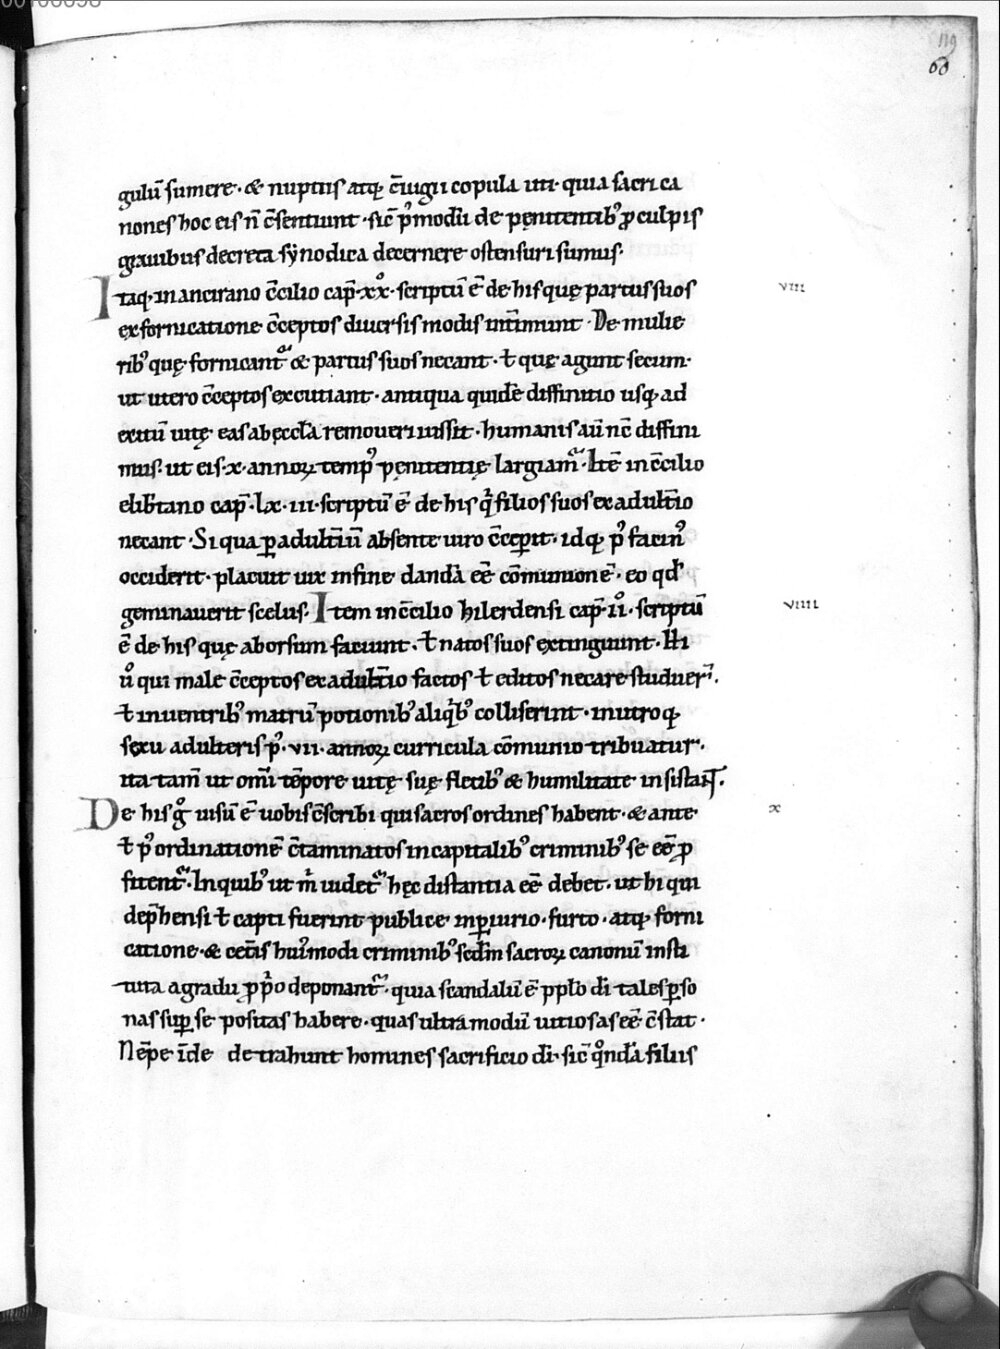 119
60
gulū sumere · & nuptiis atq; c̄iugii copula uti · quia sacri ca
nones hoc eis n̄ c̄sentiunt · sic̄ p̓modū de pęnitentib; ꝓ culpis
grauibus decreta sẏnodica decernere ostensuri sumus·
Itaq; in ancirano c̄cilio cap̄ · xx̊ · scriptū ē de his quę partus suos viii
ex fornicatione c̄ceptos diuersis modis int̄imunt · De mulie
rib; quę fornicant̃ & partus suos necant · ł quę agunt secum·
ut utero c̄ceptos excutiant · antiqua quidē diffinitio usq; ad
exitū uitę eas ab ęccl̄a remoueri iussit · humanis aū nc̄ diffini
mus · ut eis · x · annoꝝ temp̓ pęnitentię largiam̃ · Itē in c̄cilio
elib̄tano cap̄ · lx · iii · scriptū ē de his q̓ filios suos ex adult̄io
necant · Si qua ꝑ adult̄iū absente uiro c̄cep̱it · idq; p̓ facin̓
occiderit · placuit uix in fine dandā eē cōmunionē · eo qd̓
geminauerit scelus · Item in c̄cilio hilerdensi cap̄ · ii̊ · scriptū viiii
ē de his quę aborsum faciunt · ł natos suos extinguunt · Hi
ů qui male c̄ceptos ex adult̄io factos ł editos necare studuer̄ ·
ł in uentrib; matrū potionib; aliq̓b; colliserint · in utroq;
sexu adulteris p̓ · vii · annoꝝ curricula cōmunio tribuatur ·
ita tam̄ ut om̄i tēpore uitę suę fletib; & humilitate insistant̃.
De his q̊ uisū ē uobis c̄scribi qui sacros ordines habent · & ante x
ł p̓ ordinationē c̄taminatos in capitalib; criminib; se eē ꝓ
fitent̃ · In quib; ut m̓ uidet̃ hęc distantia eē debet · ut hi qui
dep̄hensi ł capti fuerint publice in ꝑiurio · furto · atq; forni
catione · & cet̄is hui̓modi criminib; sedm̄ sacroꝝ canonū insti
tuta a gradu ꝓp̓o deponant̃ · quia scandalū ē pplo dī tales ꝑso
nas suꝑ se positas habere · quas ultra modū uitiosas eē c̄stat ·
Nēpe īde detrahunt homines sacrificio dī · sic̄ q̊ndā filiis